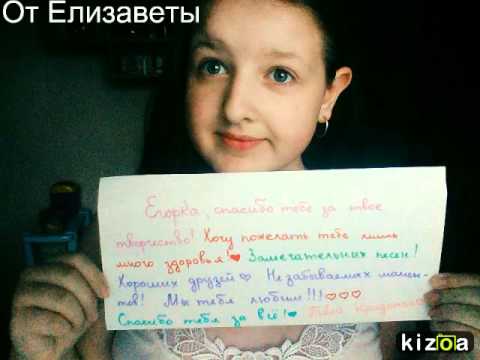 От Елизаветы
Егорка, спасибо тебе за твое
творчество! Хочу пожелать тебе лишь
много здоровья!♥ Замечательных песен!
Хороших друзей♡ Незабываемых момен-
тов! Мы тебя любим!!!♡♡♡
Спасибо тебе за всё!♥ Твоя
kizoa